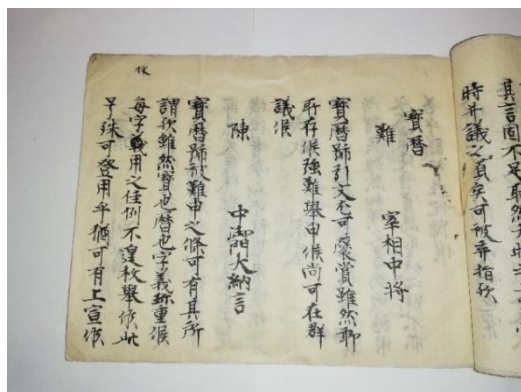 其言固不足取然
時并議之真矣可被弃捐歟
寶暦
難 宰相中将
寶暦号引文尤可褒賞雖然聊
所存候強難挙申候尚可在群
議候
陳 中御門大納言
寶暦号被難申之條可有其所
謂歟雖然寶也暦也字義珎重候
毎字載用之佳例不遑枚挙候此
号殊可登用乎猶可有上宣候